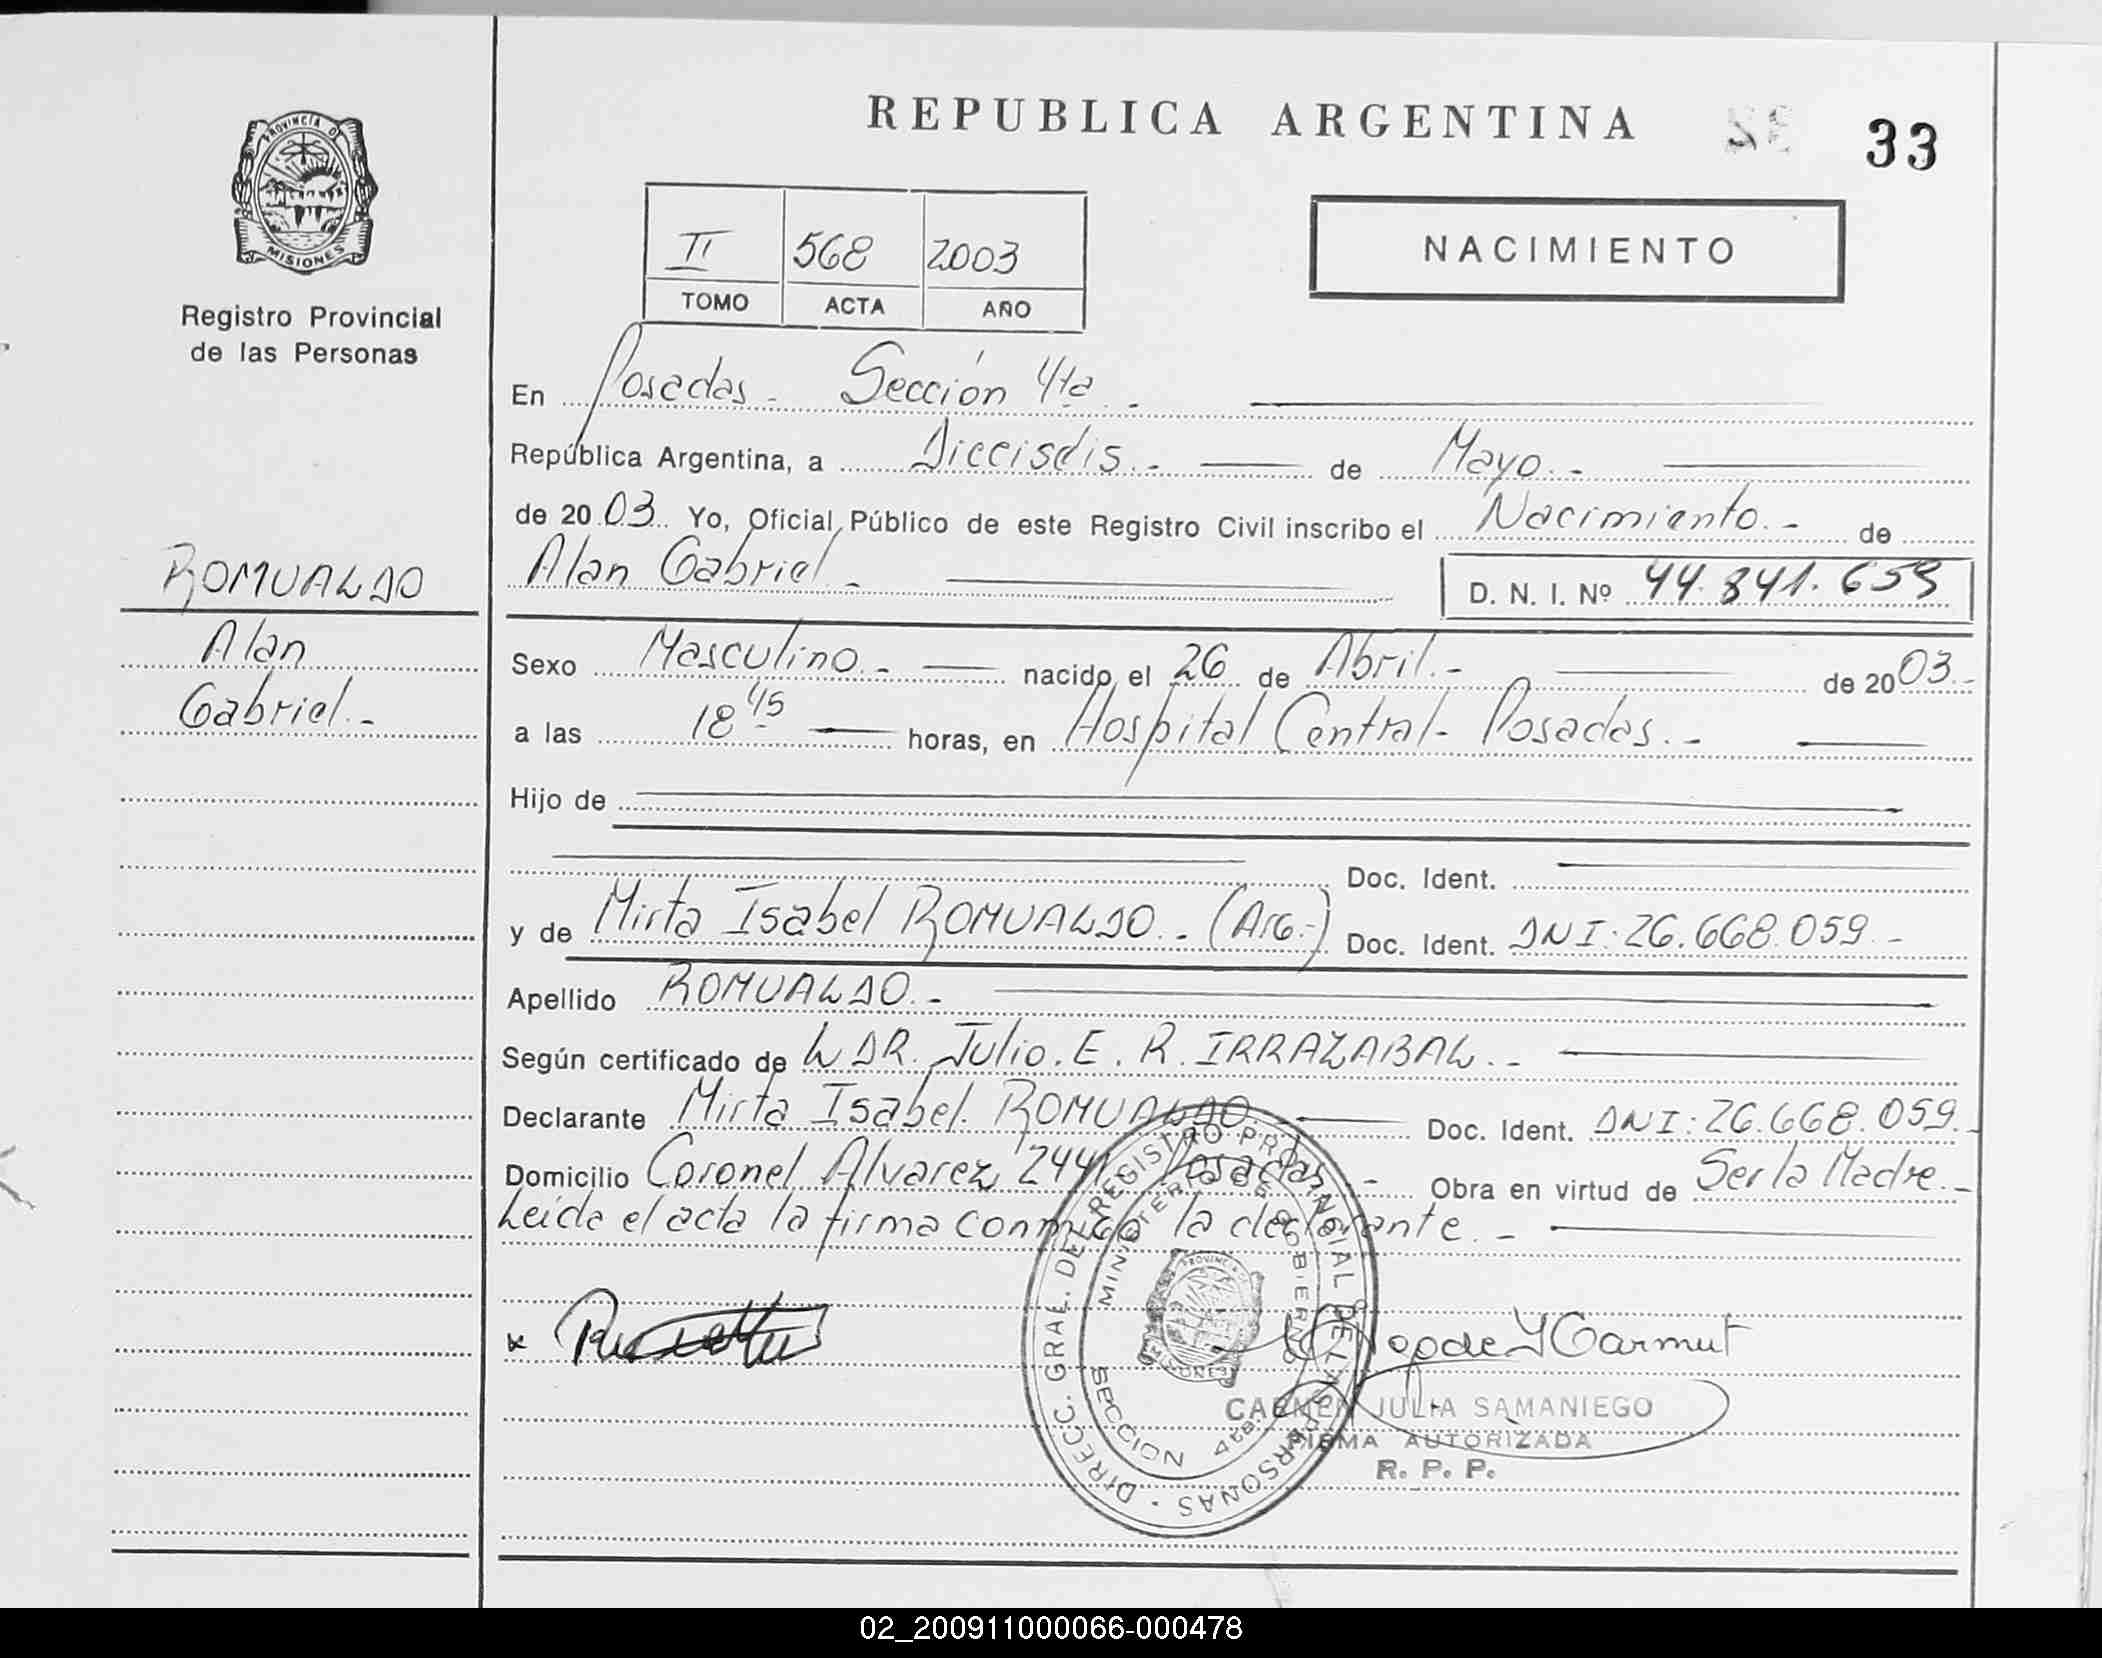 REPUBLICA ARGENTINA
33
PROVINCIA D
MISIONES
Registro Provincial
de las Personas
II 568 2003
TOMO ACTA AÑO
NACIMIENTO
En Posadas - Sección 4ta. -
República Argentina, a Dieciséis. - de Mayo. -
de 2003. Yo, Oficial Público de este Registro Civil inscribo el Nacimiento. - de
Alan Gabriel. - D. N. I. Nº 44.841.659
ROMUALDO
Alan
Gabriel. -
Sexo Masculino. - nacido el 26 de Abril. - de 2003. -
a las 18 45 horas, en Hospital Central - Posadas. -
Hijo de
Doc. Ident.
y de Mirta Isabel ROMUALDO. - (Arg.-) Doc. Ident. DNI: 26.668.059. -
Apellido ROMUALDO. -
Según certificado de L DR. Julio. E. R. IRRAZABAL. -
Declarante Mirta Isabel. ROMUALDO Doc. Ident. DNI: 26.668.059. -
Domicilio Coronel Alvarez 244 Posadas. - Obra en virtud de Ser la Madre. -
Leida el acta la firma conmigo la declarante. -
x
DIRECC. GRAL. DEL REGISTRO PROVINCIAL DE LAS PERSONAS
MINISTERIO DE GOBIERNO
SECCION 4ta.
PROVINCIA D
MISIONES
CARMEN JULIA SAMANIEGO
FIRMA AUTORIZADA
R. P. P.
02_200911000066-000478